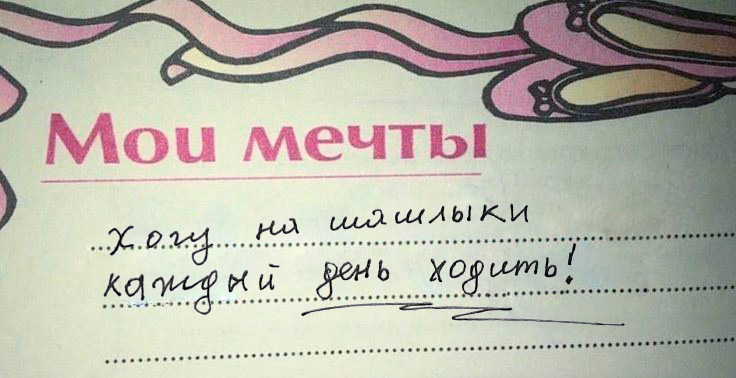 Мои мечты
Хочу на шашлыки
каждый день ходить!